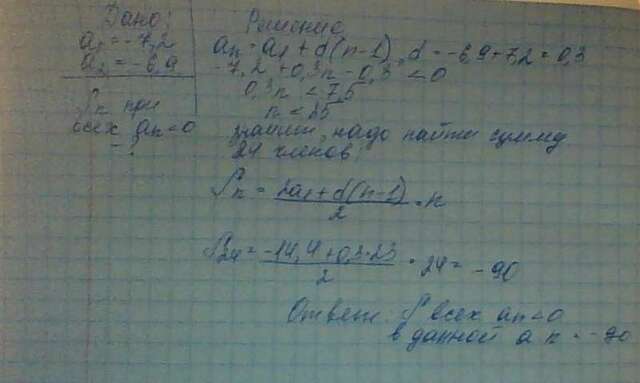 Дано:
a₁ = -7,2
a₂ = -6,9
Sₙ при
всех aₙ<0
- ?
Решение
aₙ = a₁ + d(n-1), d = -6,9+7,2 = 0,3
-7,2 + 0,3n - 0,3 < 0
0,3n < 7,5
n < 25
значит, надо найти сумму
24 членов:
Sₙ = 2a₁ + d(n-1) / 2 · n
S₂₄ = -14,4 + 0,3·23 / 2 · 24 = -90
Ответ: S всех aₙ<0
в данной а п = -90